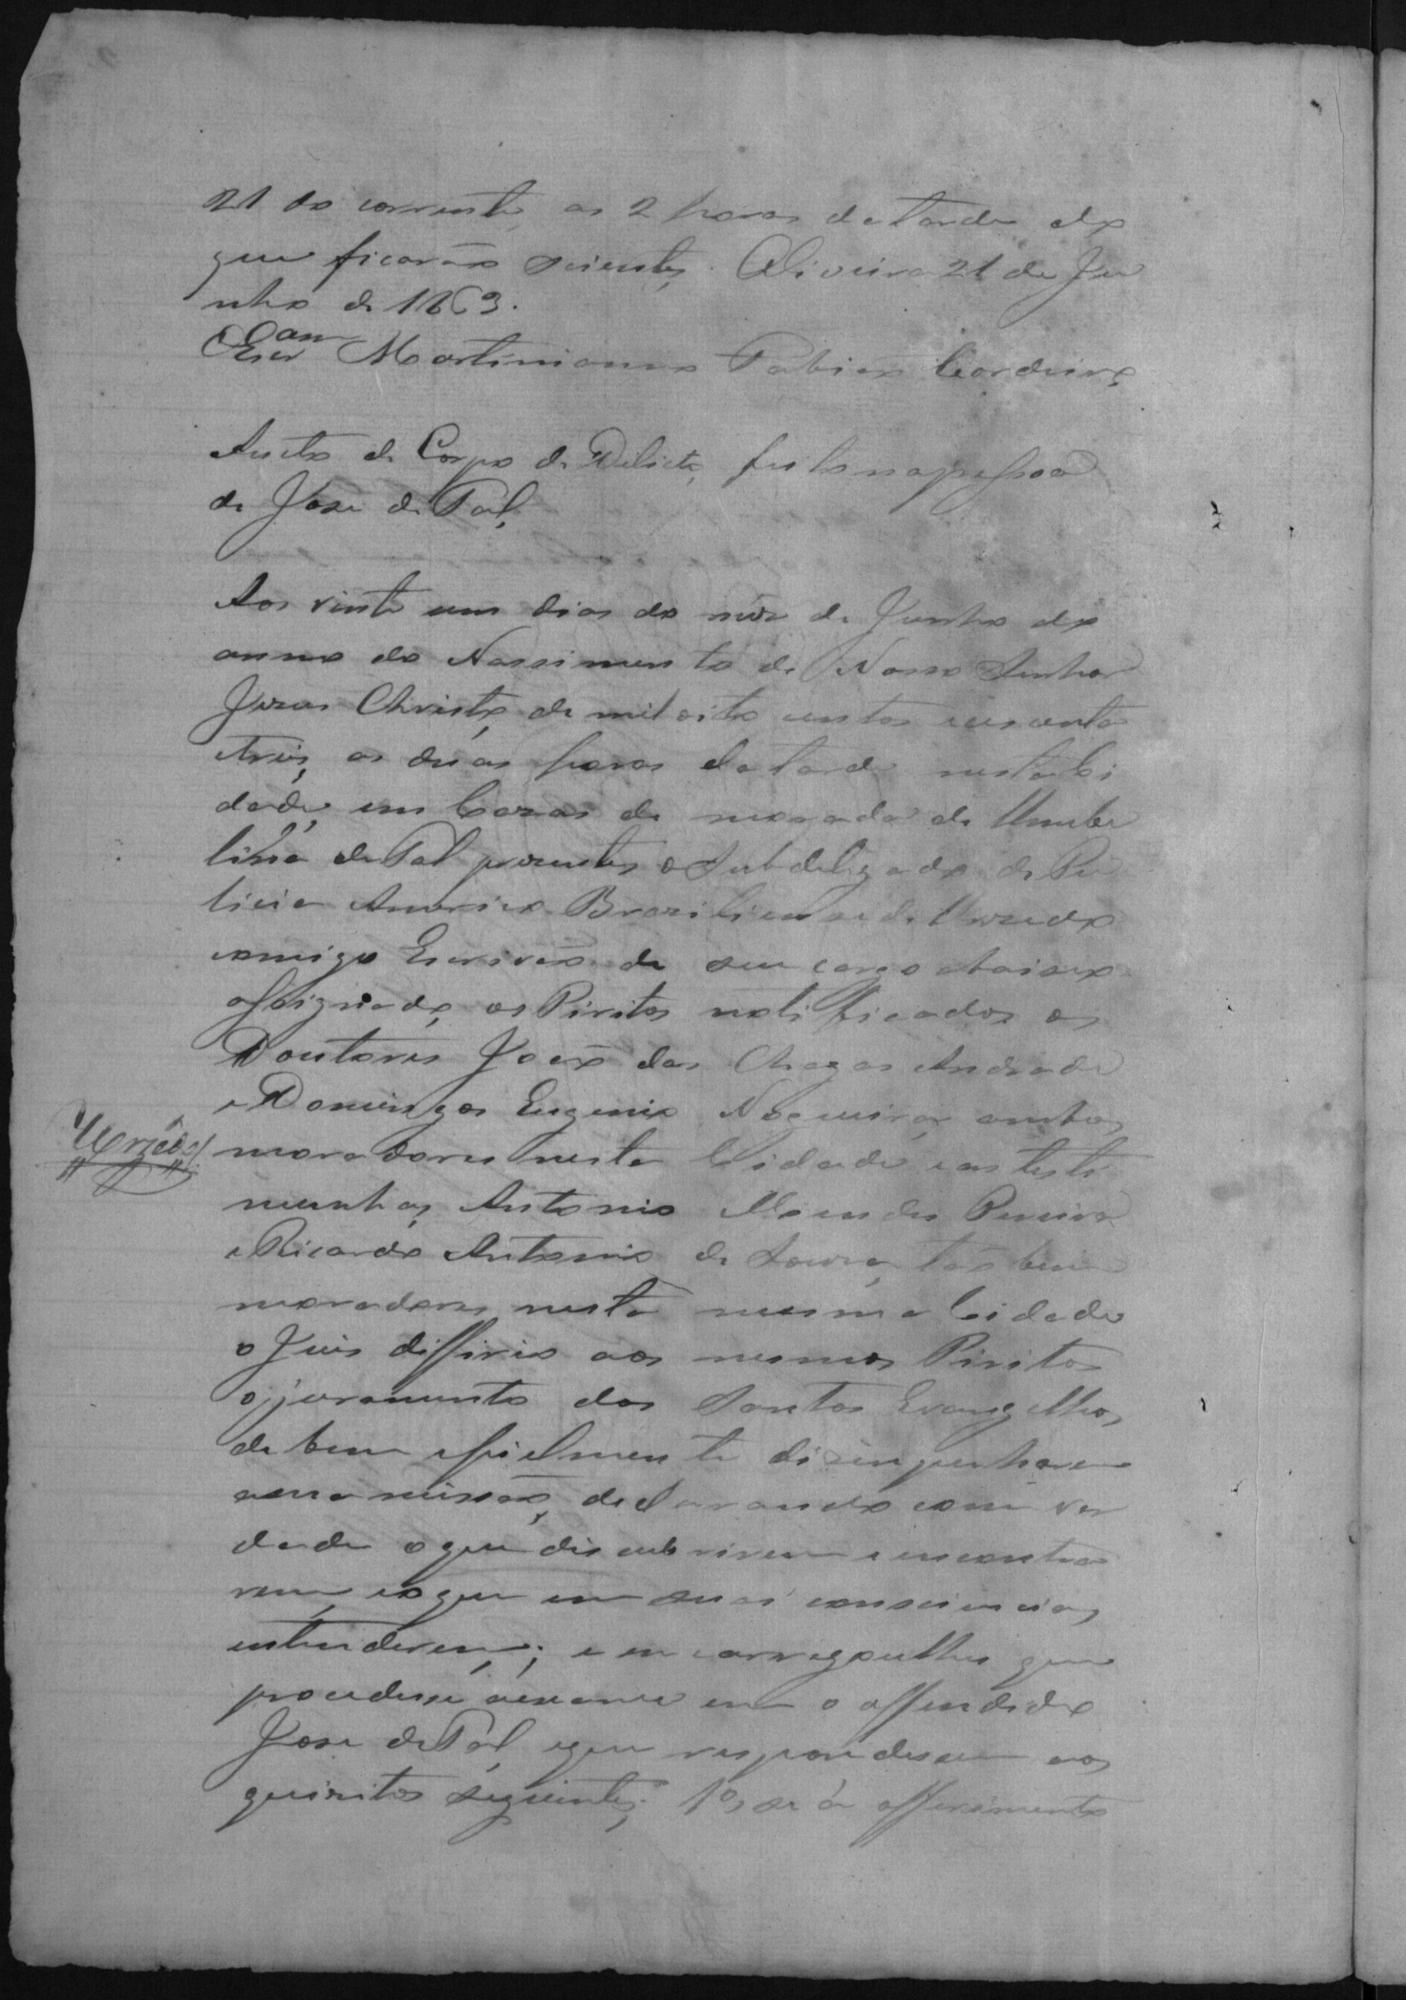 21 do corrente, as 2 horas da tarde do
que ficarão scientes. Oliveira 21 de Ju
nho de 1863.
O Escr.am Martiniano Tobias Cordeiro
Aucto de Corpo de Delicto, feito na pessoa
de Jose de Tal,
Aos vinte um dias do mez de Junho do
anno do Nassimento de Nosso Senhor
Jezus Christo, de mil oito centos cecenta
etreis, as duas horas da tarde nesta Ci
dade, em Cazas de morada de Umbe
lina de Tal prezentes o Subdelegado de Po
licia Americo Braziliense de Urzedo
comigo Escrivão de seu cargo abaixo
assignado, os Piritos notificados os
Doutores João das Chagas Andrade
e Domingos Eugenio Nogueira, ambos
Urzêdo
moradores nesta Cidade, e as teste
munhas, Antonio Mendes Pereira
e Ricardo Antonio de Souza, tão bem
moradores nesta mesma Cidade
o Juis differio aos mesmos Piritos
o juramento dos Santos Evangelhos,
de bem e fielmente dizimpenharem
a sua missão, declarando com ver
dade o que discubrirem e encontra
rem, e o que em suas consciencias
entenderem; e encarregoulhes que
procedesse a exame em o offendido
Jose de Tal, e que respondessem aos
quizitos seguintes; 1º, se á offerimento